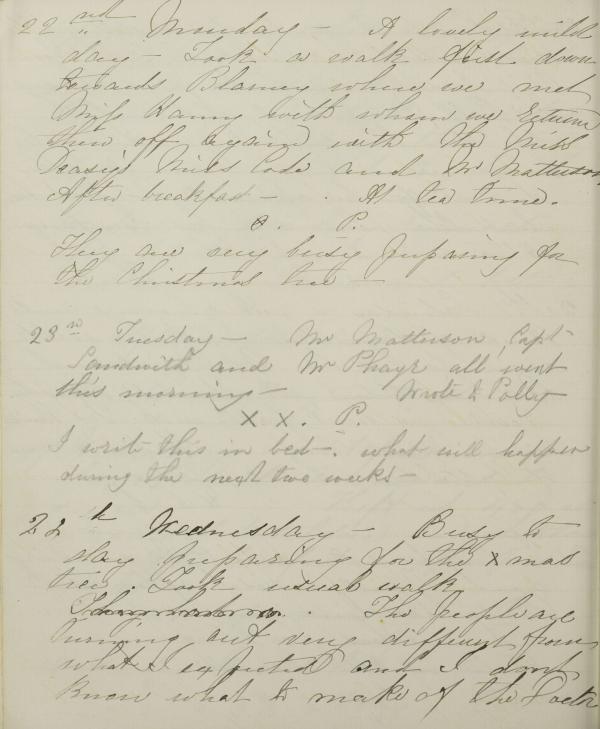 22nd Monday - A lovely mild
day - Took a walk first down
towards Blarney where we met
Miss Hanny with whom we
then off again with the Miss
Miss Code and Mr Matterson
After breakfast - . At tea time.
P.
They are very busy preparing for
the Christmas tree -
23rd Tuesday - Mr Matterson, Capt
Sandwith and Mr Phayr all went
this morning - Wrote to Polly
X X . P.
I write this in bed - what will happen
during the next two weeks -
24th Wednesday - Busy to
day preparing for the Xmas
tree. Took usual walk
. The people are
turning out very different from
what I expected and I dont
know what to make of the Doctor